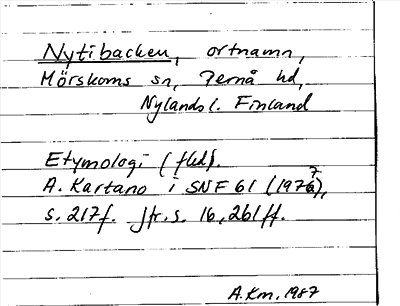 Nytibacken, ortnamn,
Mörskoms sn, Pernå hd,
Nylands l. Finland
Etymologi (fled).
A. Kartano i SNF 61 (1976),
7
s. 217f. Jfr. s. 16, 261ff.
A.Km. 1987